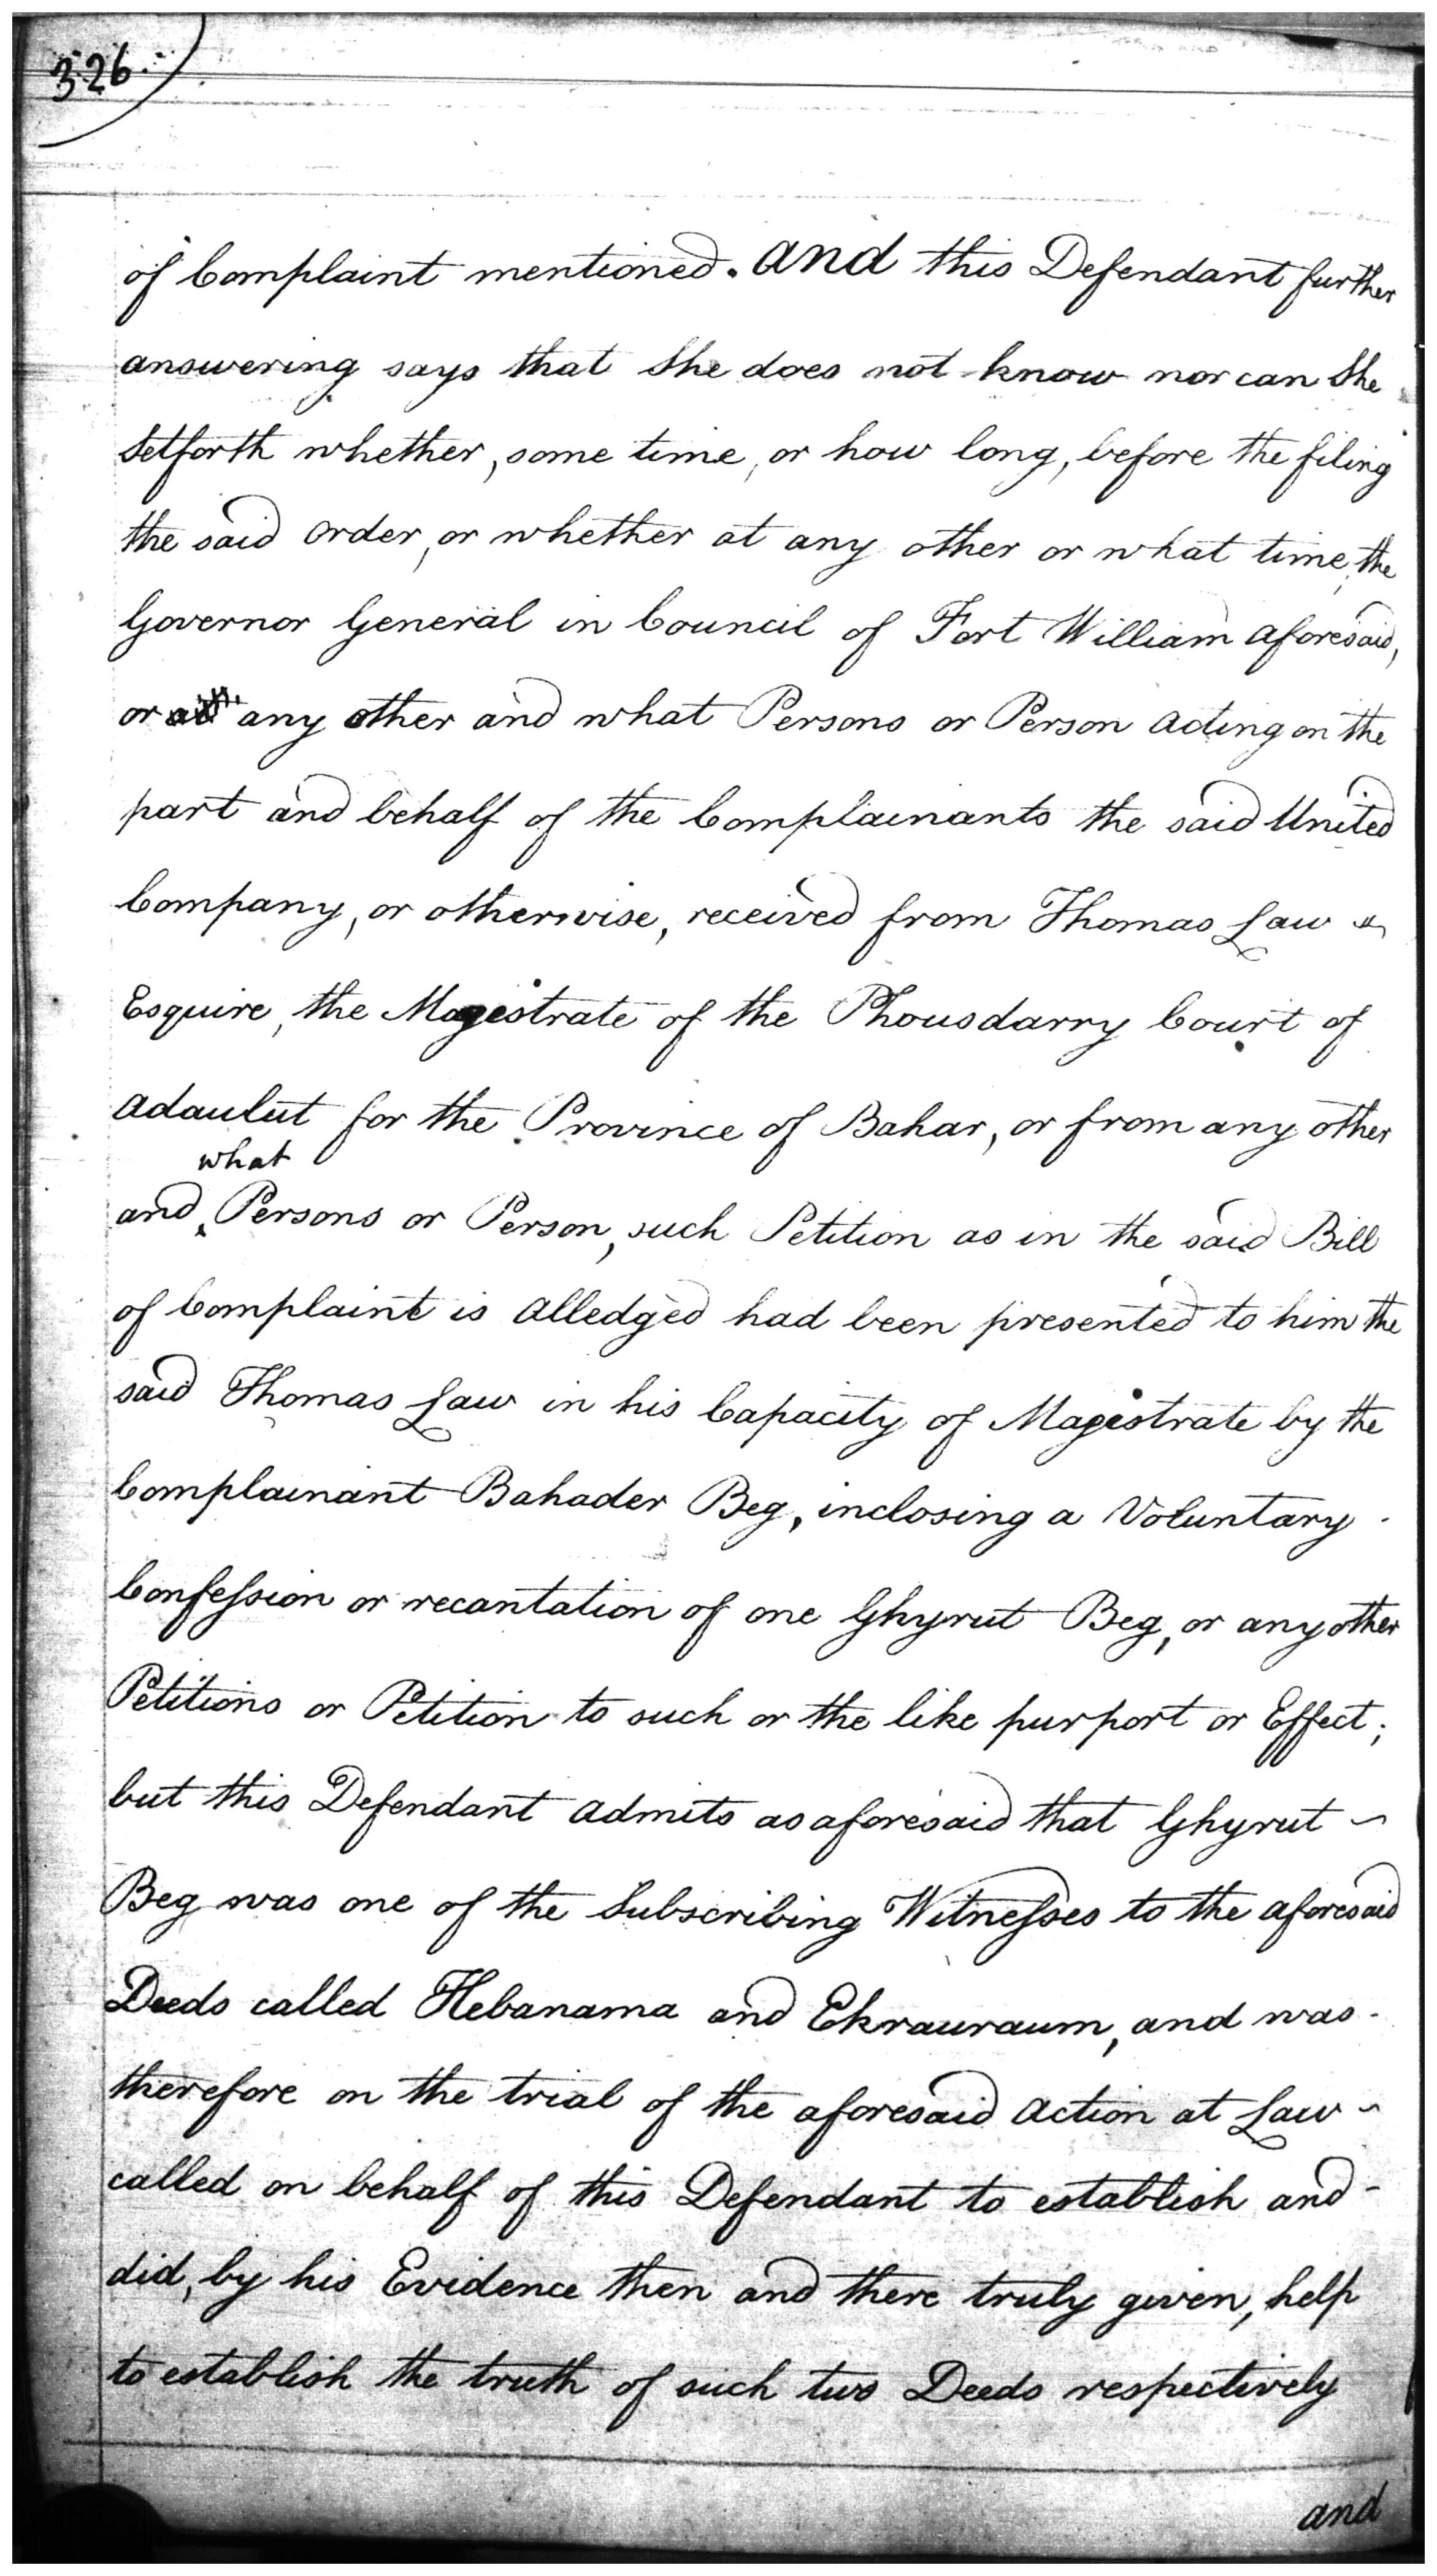 326
of Complaint mentioned. And this Defendant further
answering says that She does not know nor can She
Setforth whether, some time, or how long, before the filing
the said order, or whether at any other or what time, the
Governor General in Council of Fort William aforesaid,
or any other and what Persons or Person acting on the
part and behalf of the Complainants the said United
Company, or otherwise, received from Thomas Law
Esquire, the Magistrate of the Phousdarry Court of
Adaulut for the Province of Bahar, or from any other
what
and Persons or Person, such Petition as in the said Bill
of Complaint is alledged had been presented to him the
said Thomas Law in his Capacity of Magistrate by the
Complainant Bahader Beg, inclosing a Voluntary
Confession or recantation of one Ghyrut Beg, or any other
Petitions or Petition to such or the like purport or Effect;
but this Defendant admits as aforesaid that Ghyrut
Beg was one of the Subscribing Witnesses to the aforesaid
Deeds called Hebanama and Ekrauraum, and was
therefore on the trial of the aforesaid action at Law
called on behalf of this Defendant to establish and
did, by his Evidence then and there truly given, help
to establish the truth of such two Deeds respectively
and